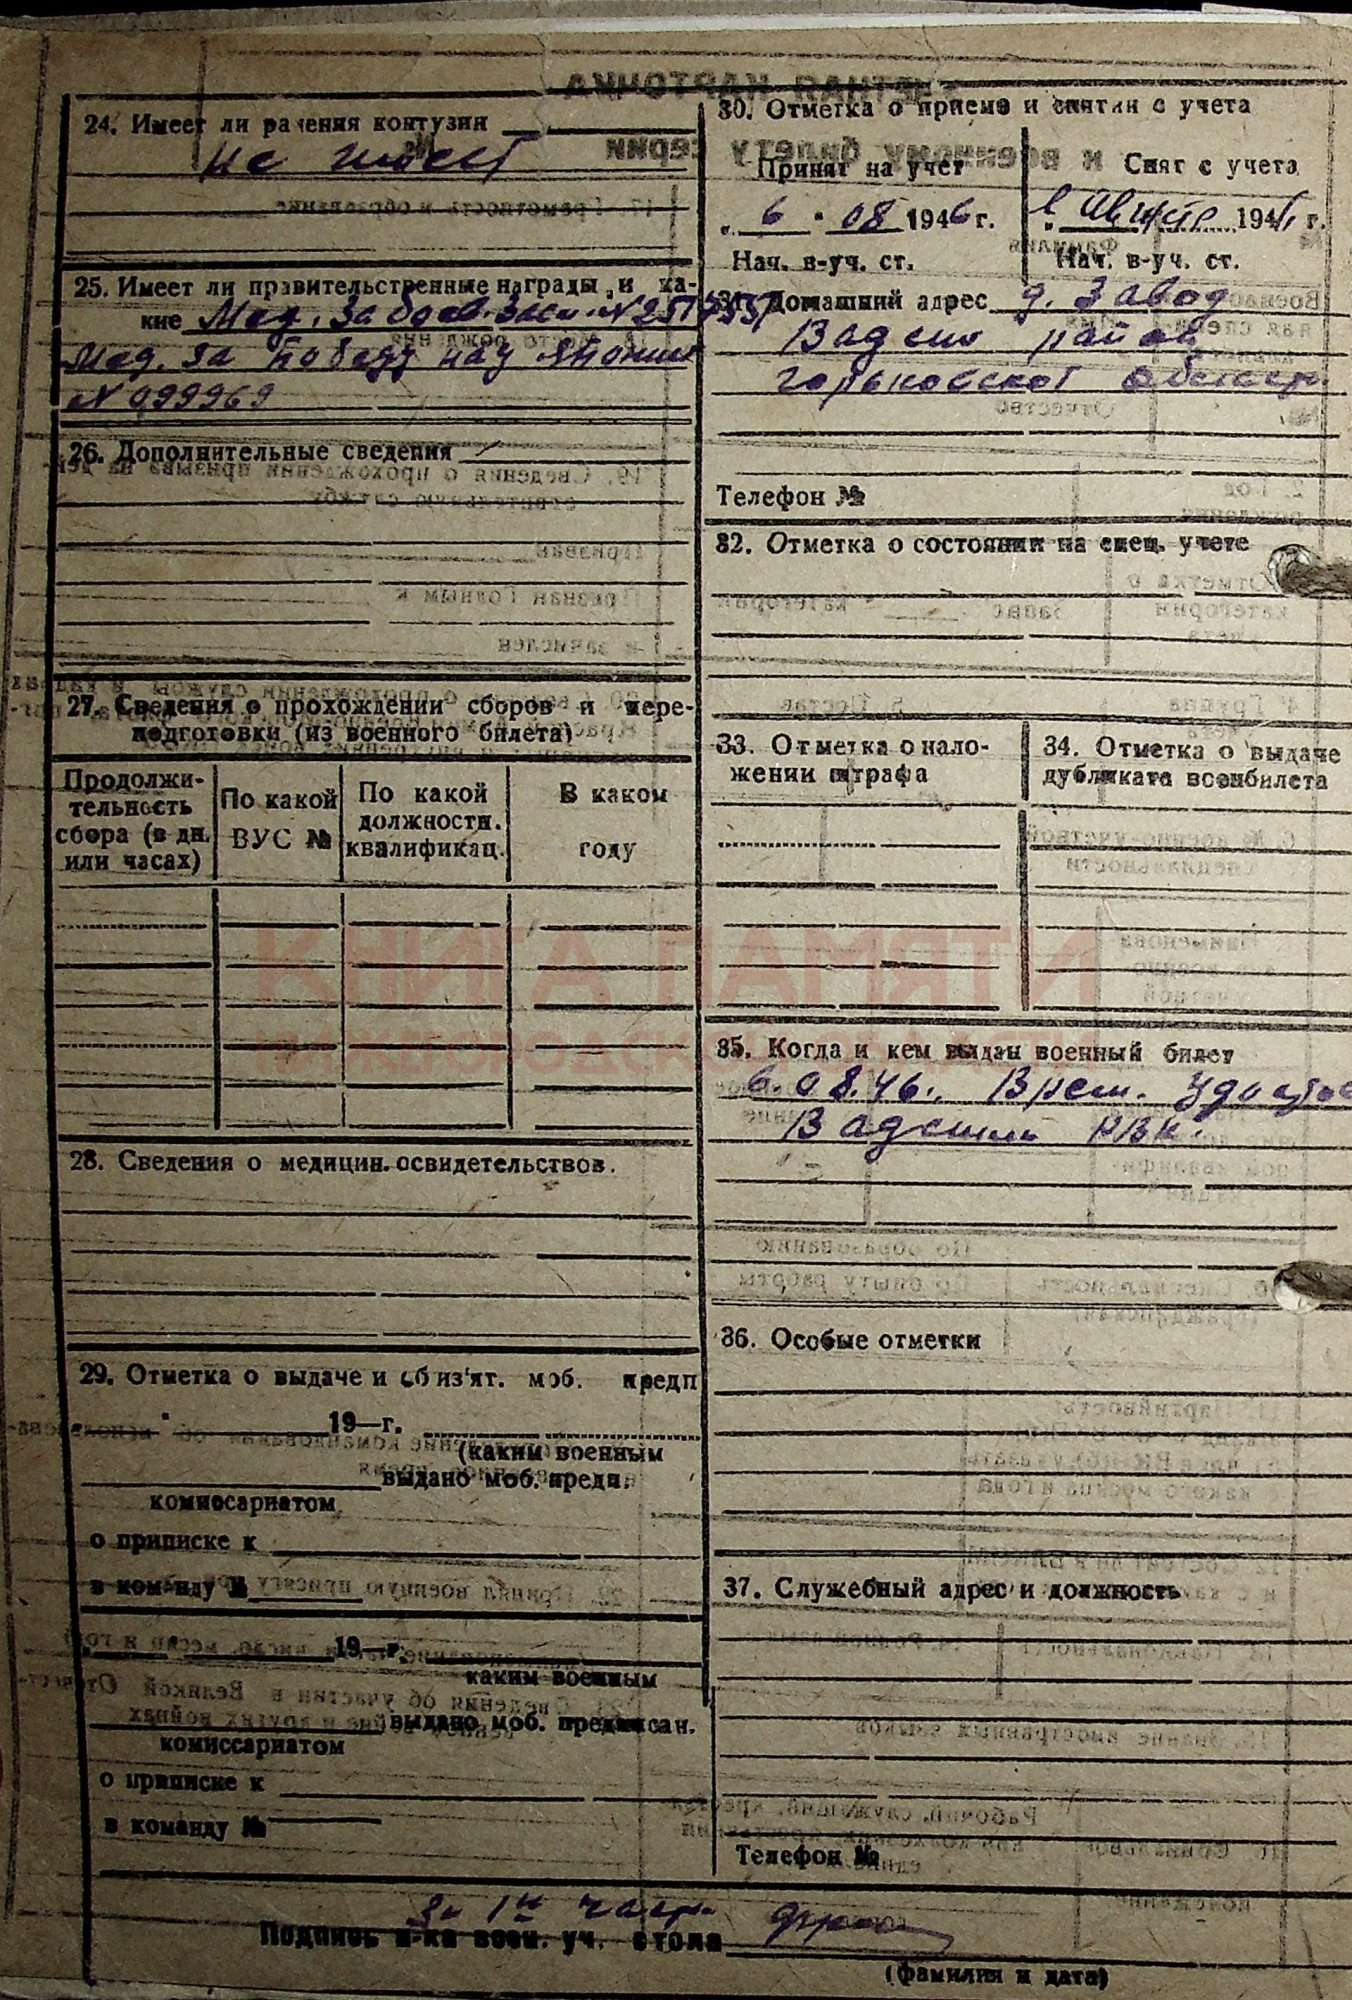 24. Имеет ли ранения контузии
не имеет
25. Имеет ли правительственные награды и ка-
кие Мед. За боев. Засл. N
Мед. За Победу над Японией
N 099969
26. Дополнительные сведения
27. Сведения о прохождении сборов и пере-
подготовки (из военного билета)
Продолжи-
тельность
сбора (в дн.
или часах)
По какой
ВУС №
По какой
должности.
квалификац.
В каком
году
28. Сведения о медицин. освидетельствов.
29. Отметка о выдаче и об из'ят. моб. предп
19—г.
(каким военным
выдано моб. предп.
комиссариатом
о приписке к
в команду №
19—г.
каким военным
выдано моб. предписан.
комиссариатом
о приписке к
в команду №
30. Отметка о приеме и снятии с учета
Принят на учет
„ 6 " 08 1946 г.
Нач. в-уч. ст.
Снят с учета
194 г.
Нач. в-уч. ст.
31. Домашний адрес д. Завод
Вадский район
Горьковской области
Телефон №
32. Отметка о состоянии на спец. учете
33. Отметка о нало-
жении штрафа
34. Отметка о выдаче
дубликата военбилета
35. Когда и кем выдан военный билет
6.08.46. Врем. удост
Вадский РВК.
36. Особые отметки
37. Служебный адрес и должность
Телефон №
1й части
Подпись н-ка воен. уч. стола
(фамилия и дата)
КНИГА ПАМЯТИ